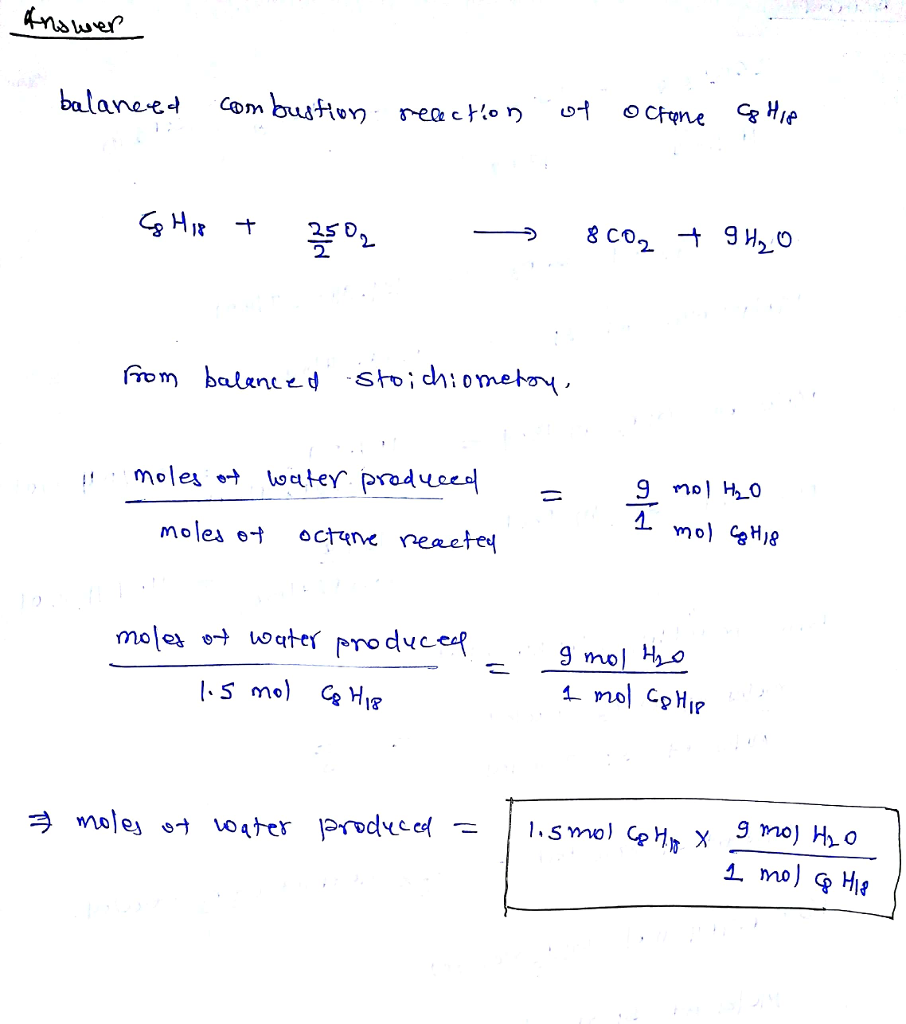 Answer
balanced combustion reaction of octane C8H18
C8H18 + 25/2 O2 → 8 CO2 + 9 H2O
From balanced stoichiometry,
moles of water produced / moles of octane reacted = 9 mol H2O / 1 mol C8H18
moles of water produced / 1.5 mol C8H18 = 9 mol H2O / 1 mol C8H18
⇒ moles of water produced = 1.5 mol C8H18 x 9 mol H2O / 1 mol C8H18